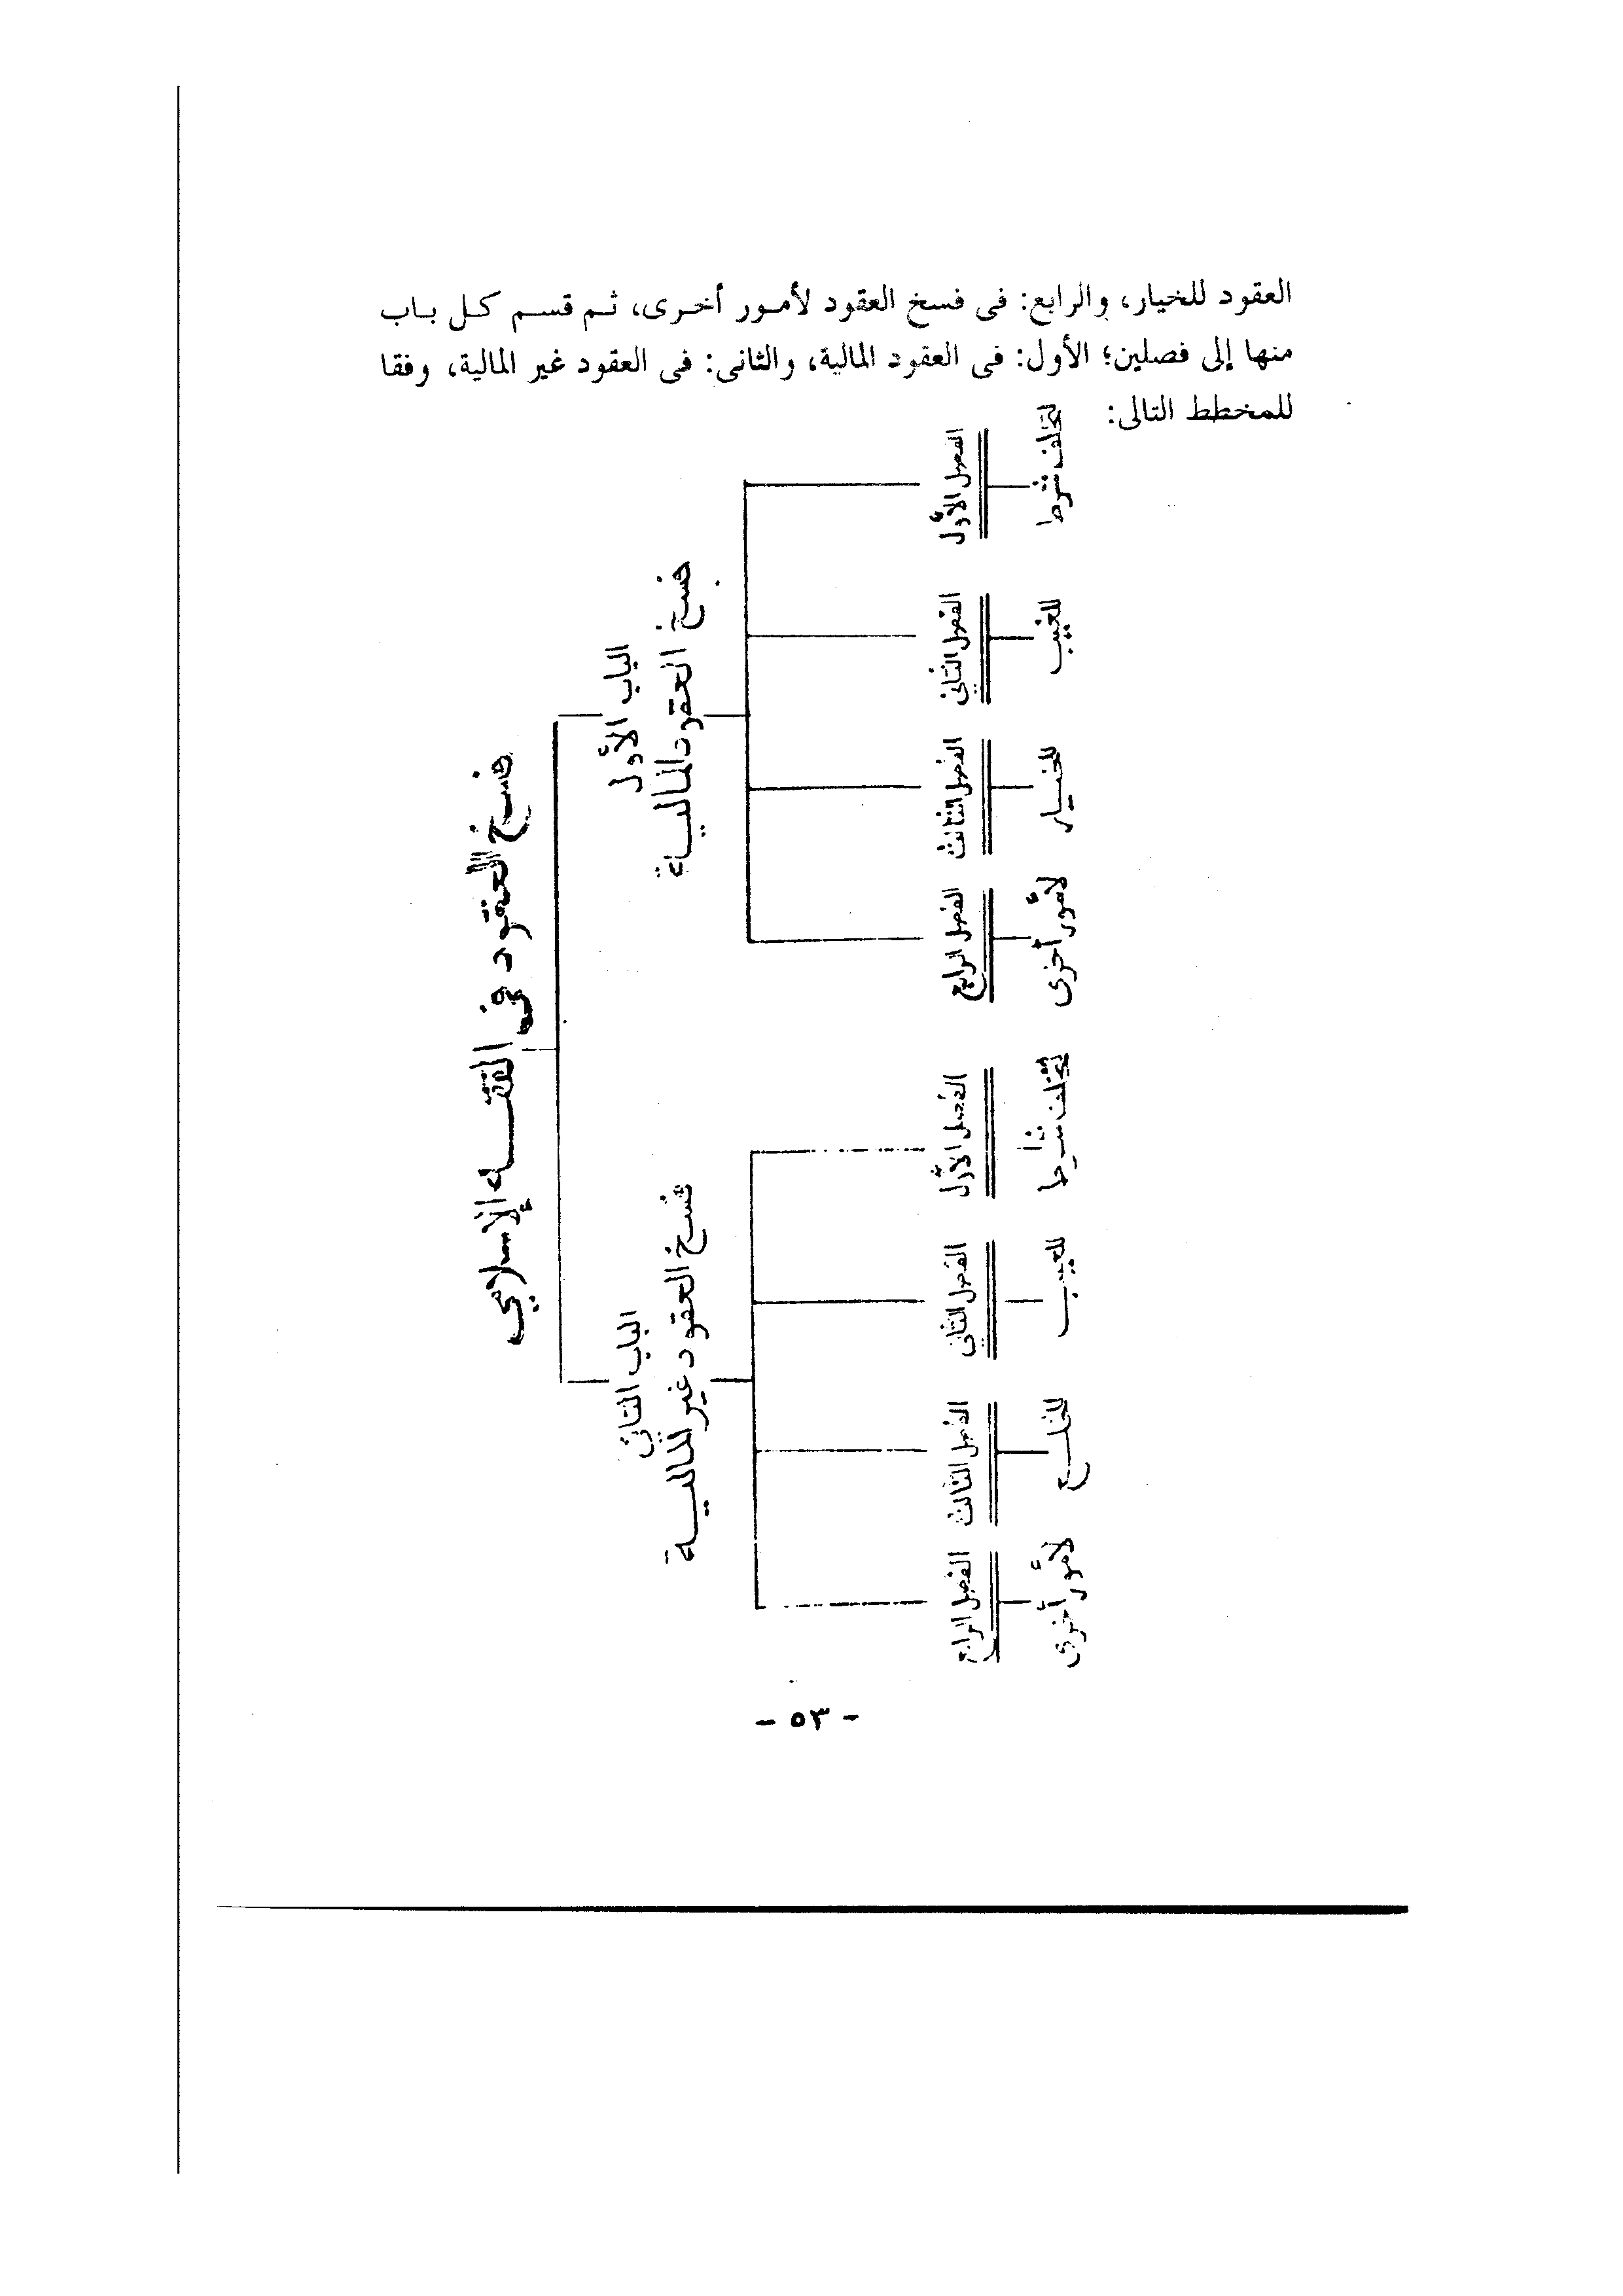 العقود للخيار، والرابع: فى فسخ العقود لأمـور أخـرى، ثـم قسـم كـل بـاب
منها إلى فصلين؛ الأول: فى العقود المالية، والثانى: فى العقود غير المالية، وفقا
للمخطط التالى:
فسخ العقود فى الفقه الإسلامي
الباب الأول
فسخ العقود المالية
الفصل الأول
لتخلف شرط
الفصل الثاني
للعيب
الفصل الثالث
للخيار
الفصل الرابع
لأمور أخرى
الباب الثاني
فسخ العقود غير المالية
الفصل الأول
لتخلف شرط
الفصل الثاني
للعيب
الفصل الثالث
للخلع
الفصل الرابع
لأمور أخرى
- ٥٣ -